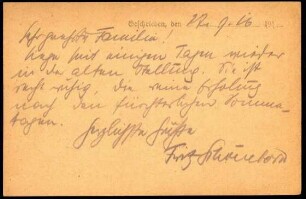 Geschrieben, den 27. 9. 16
Sehr geehrte Familie!
Liegen seit einigen Tagen wieder
in der alten Stellung. Sie ist
recht ruhig, die reine Erholung
nach den fürchterlichen Somme-
tagen.
Herzlichste Grüße
Fritz